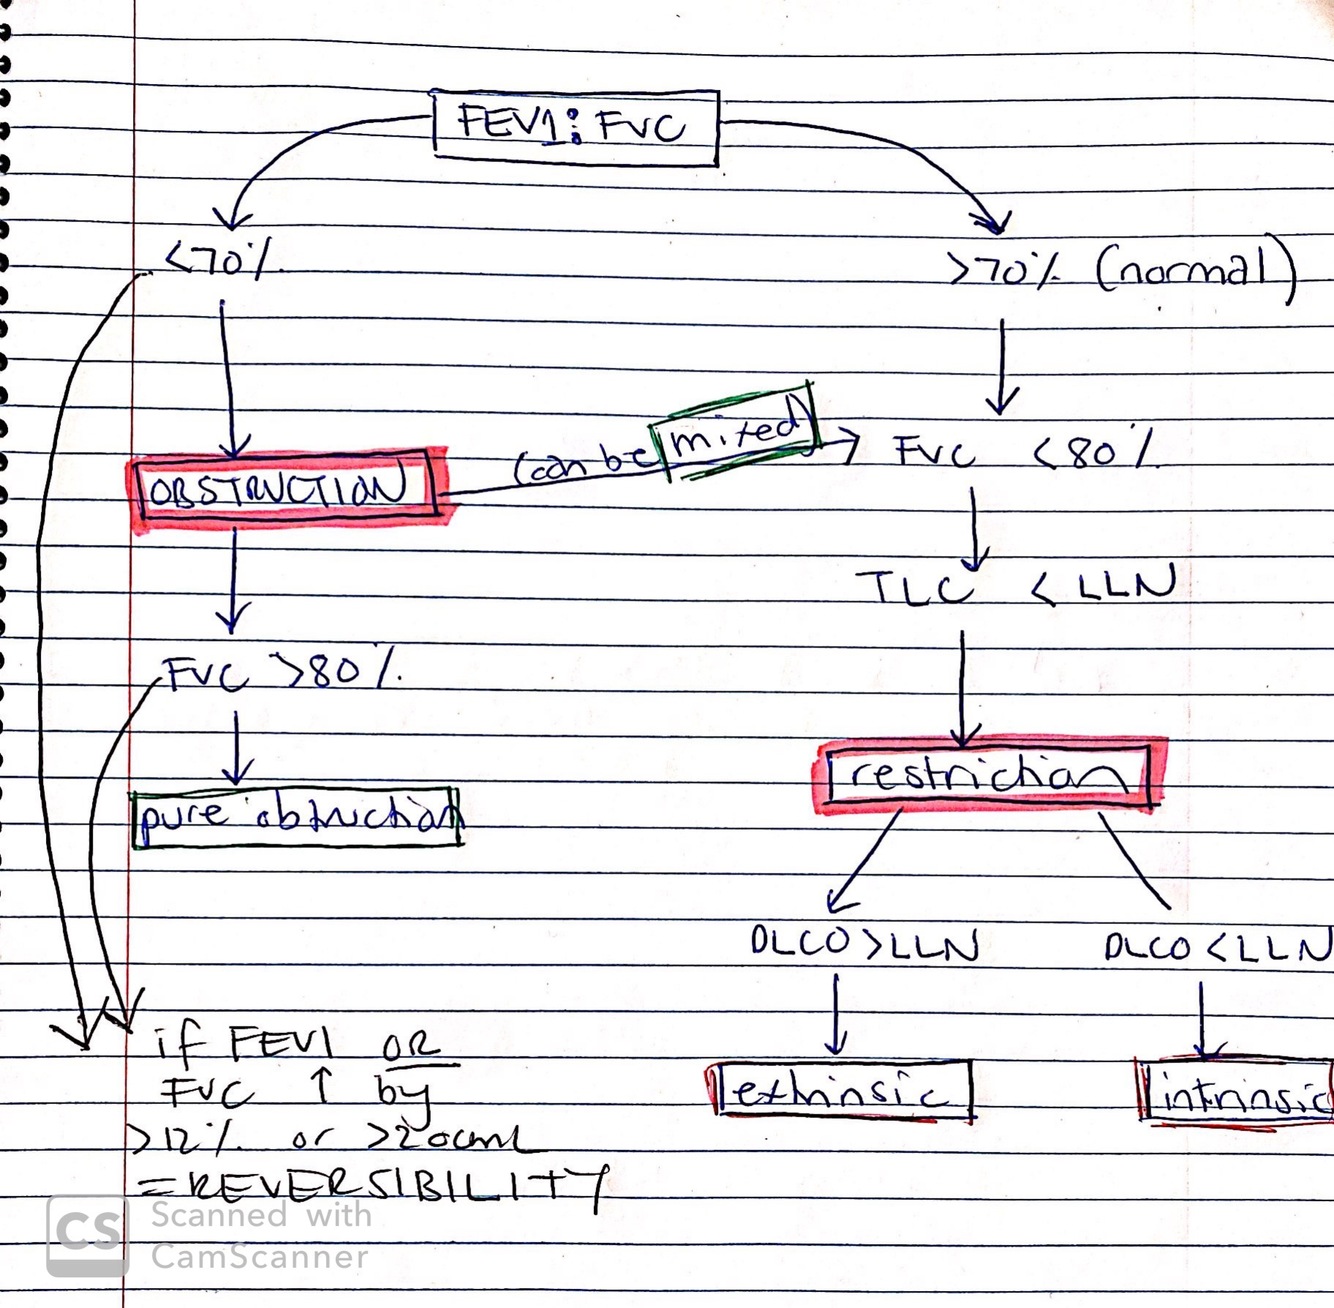 FEV1: FVC
<70%
>70% (normal)
(can be mixed)
FVC <80%
OBSTRUCTION
TLC < LLN
FVC >80%
restriction
pure obstruction
DLCO >LLN
DLCO <LLN
if FEV1 OR
FVC ↑ by
>12% or >200mL
=REVERSIBILITY
extrinsic
intrinsic
CS
Scanned with
CamScanner